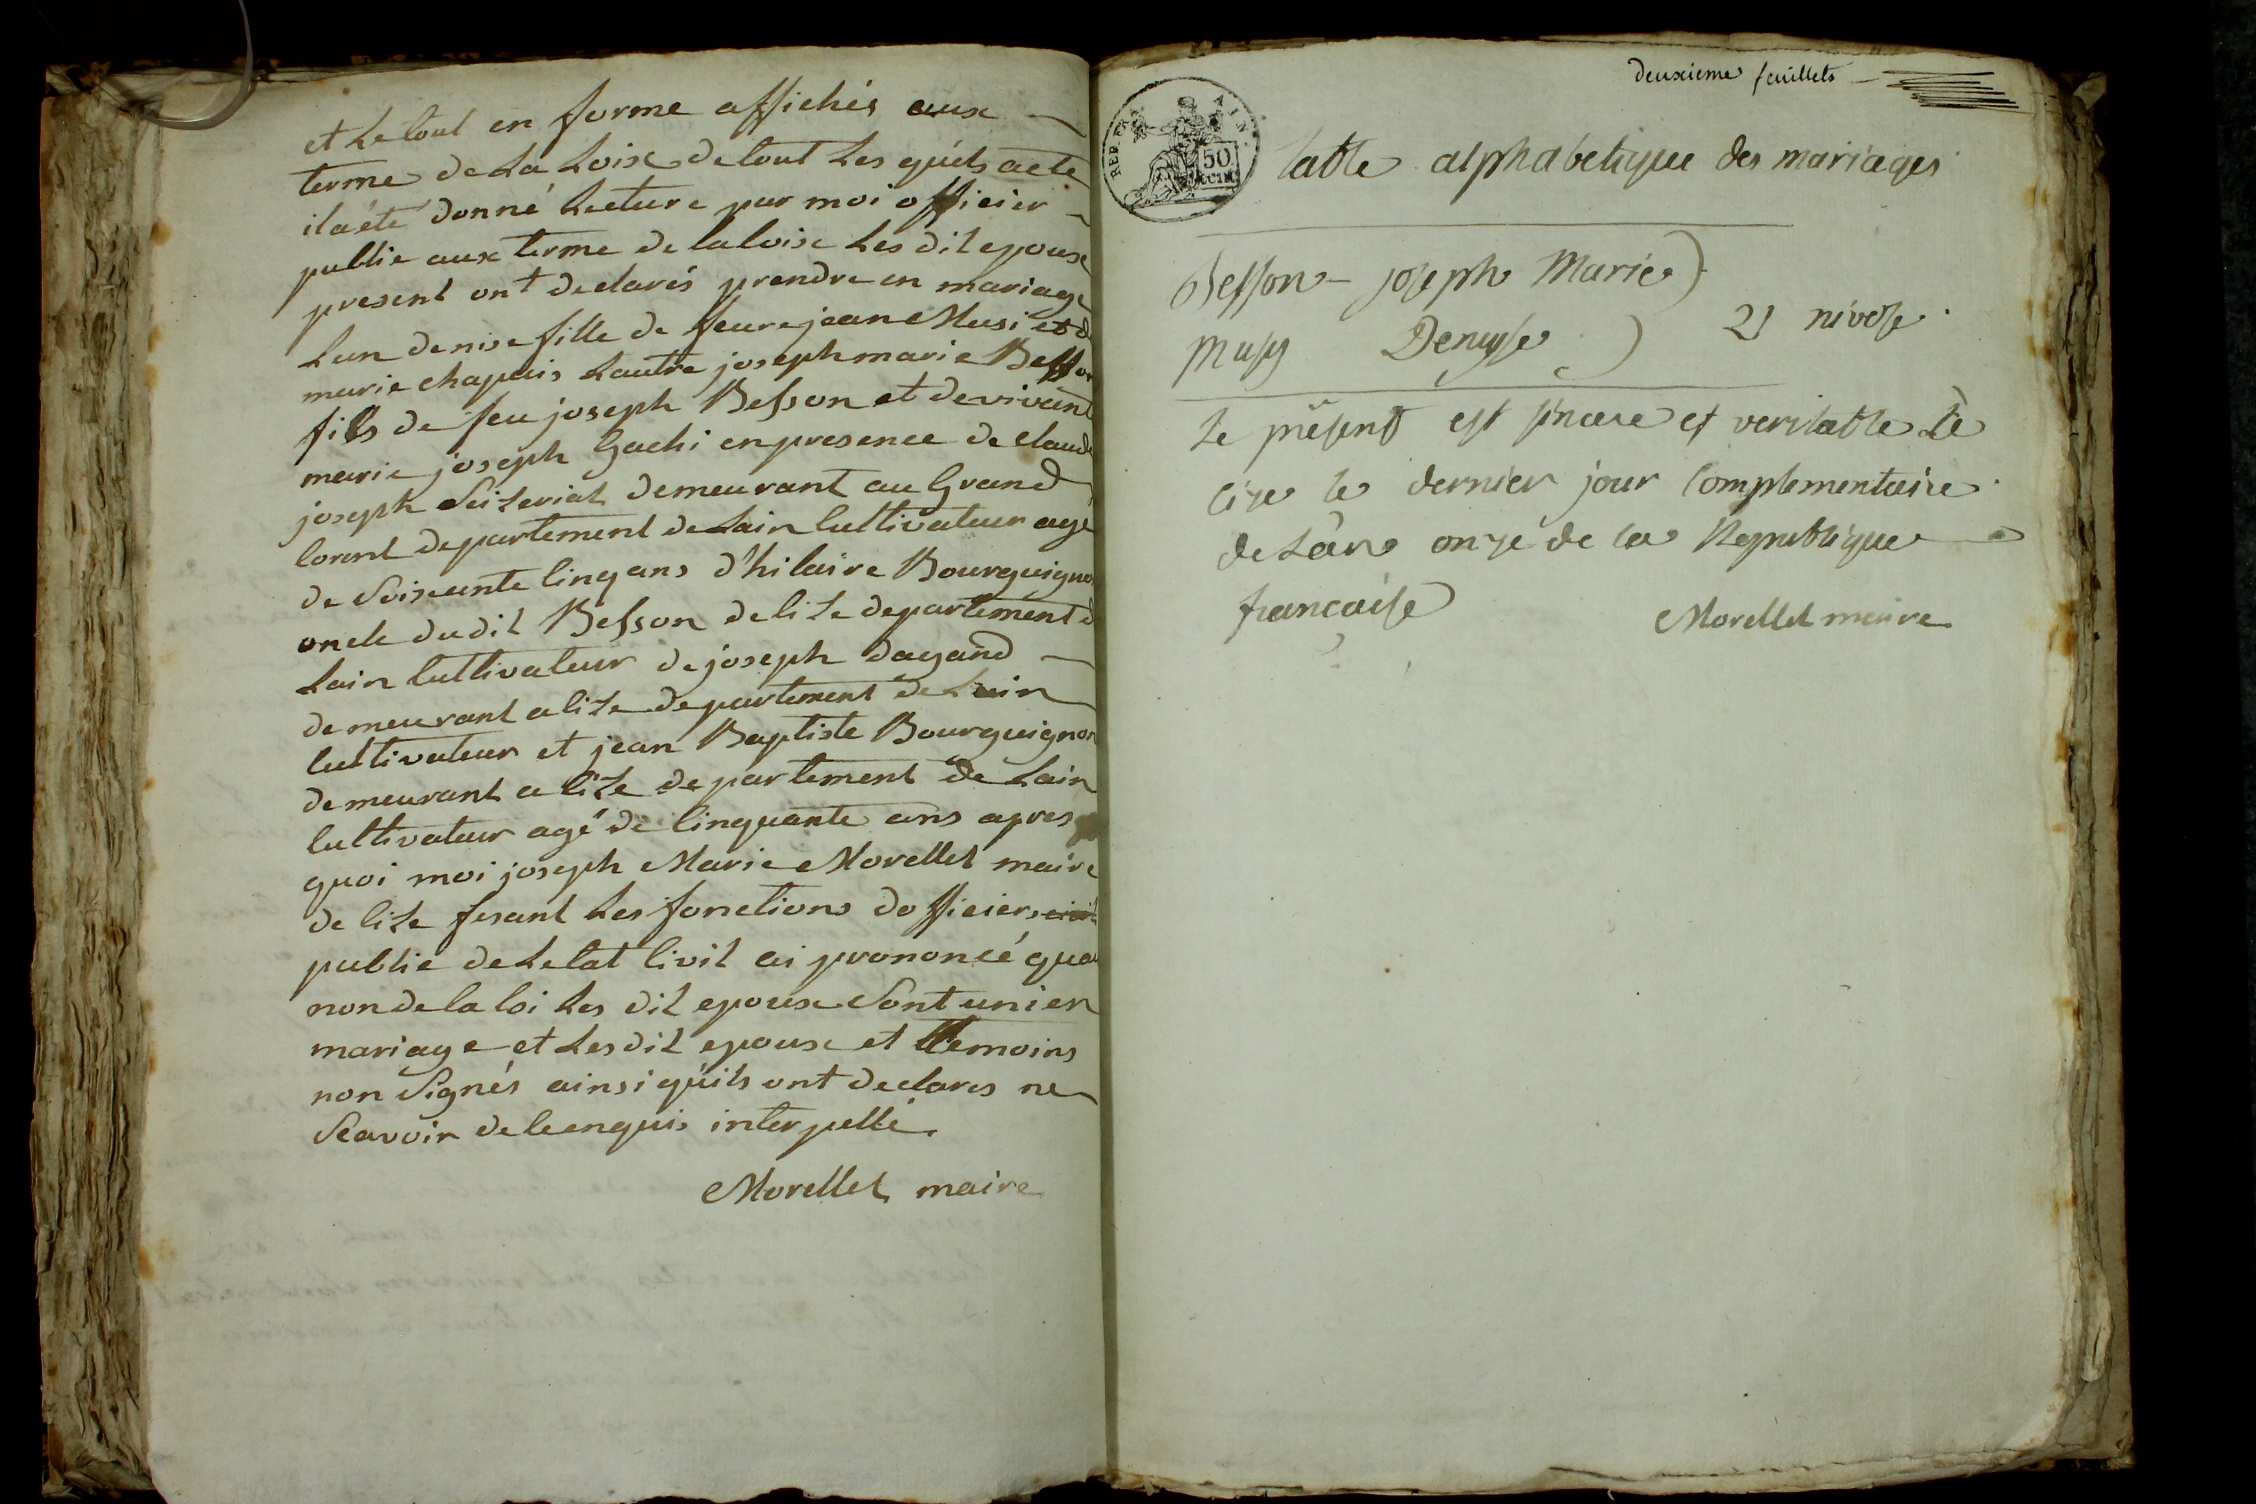 et Le tout en forme affichés aux
terme de La Loix de tout Les quels acte
il a été donné Lecture par moi officier
public aux terme de la loix Les dit epoux
present ont declarés prendre en mariage
Lun denise fille de feure jean Musi et d
marie chapuis Lautre joseph marie Besson
fils de feu joseph Besson et de vivant
marie joseph Gachi en presence de claude
joseph demeurant au Grand
Corent departement de Lain Cultivateur agé
de Soixante Cinq ans d'hilaire Bourguignon
oncle du dit Besson de lize departement d
Lain Cultivateur de joseph dagand
demeurant a lize departement de Lain
Cultivateur et jean Baptiste Bourguignon
demeurant a Cize departement de Lain
Cultivateur agé de Cinquante ans apres
quoi moi joseph Marie Morellet maire
de Cize fesant Les fonctions dofficier civil
public de Letat Civil ai prononcé quau
non de la loi Les dit epoux Sont uni en
mariage et Les dit epoux et temoins
non Signés ainsi quils ont declares ne
Scavoir de le enquis interpellé.
Morellet maire
deuxieme feuillets
REP. FRA. AIN.
50
CENT
table alphabetique des mariages
Besson - joseph Marie
Musy Denyse
21 nivose
Le present est sincere et veritable Le
Cize le dernier jour Complementaire
de Lan onze de la Republique
francaise
Morellet meire